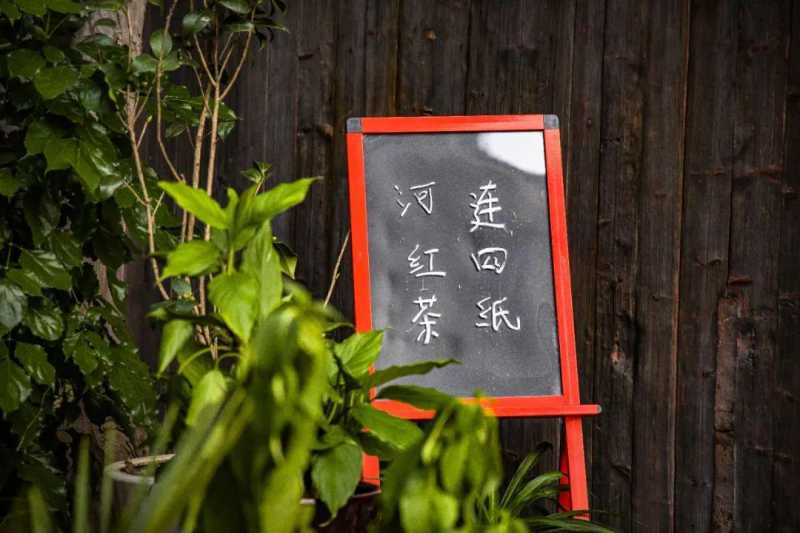 连四纸
河红茶